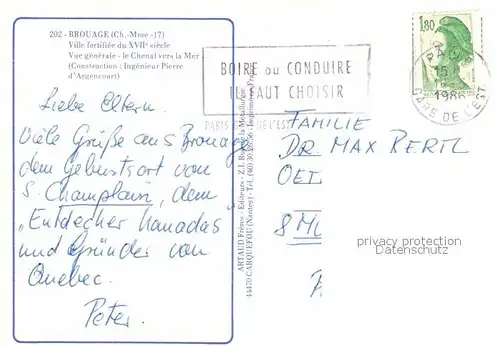 202 - BROUAGE (Ch.-Mme -17)
Ville fortifiée du XVIIe siècle
Vue générale - le Chenal vers la Mer
(Construction : Ingénieur Pierre
d'Argencourt)
Liebe Eltern.
Viele Grüße aus Brouage
dem Geburtsort von
S. Champlain, dem
"Entdecker Kanadas
und Gründer von
Quebec.
Peter.
ARTAUD Frères - Editeurs - Z.I. Rue de la Métallurgie
44470 CARQUEFOU (Nantes) - Tél. (40)
BOIRE ou CONDUIRE
IL FAUT CHOISIR
PARIS GARE DE L'EST
1,80
PARIS
15
1986
GARE DE L'EST
FAMILIE
DR MAX BERTL
OET
8 MÜ
privacy protection
Datenschutz